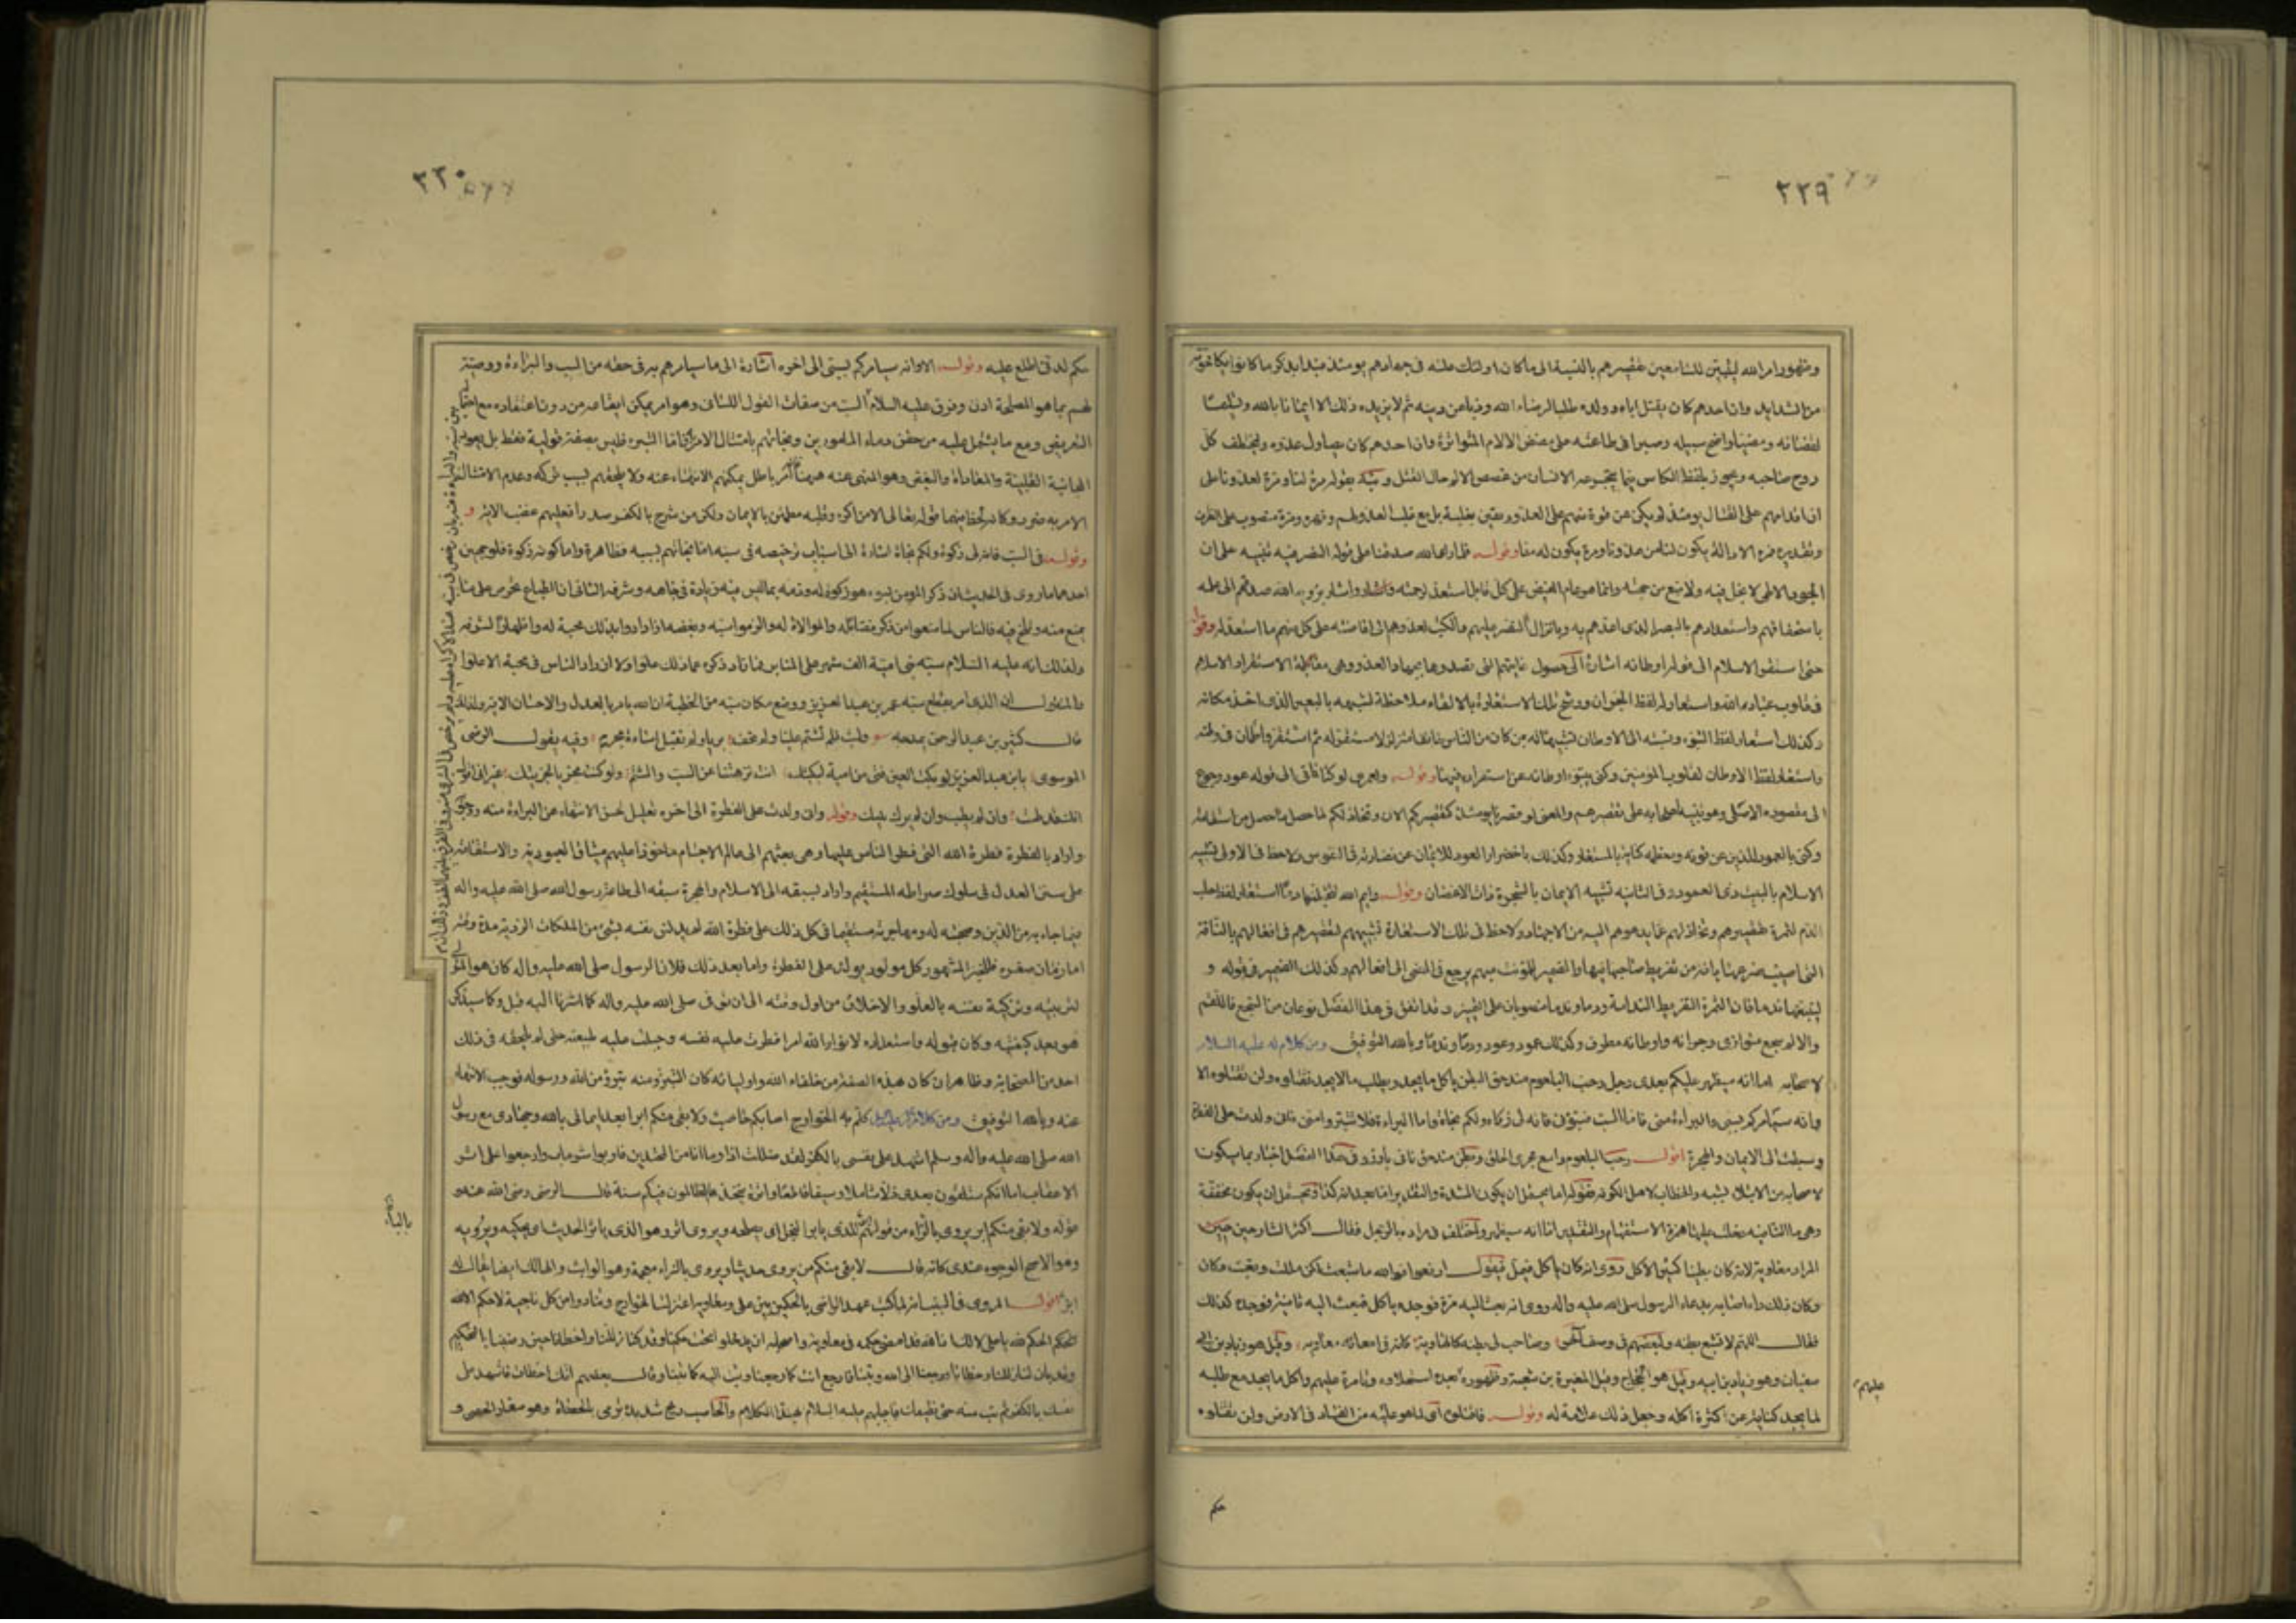 ٣٣٩
ومقهور امر الله ليتبين للسامعين تقصيرهم بالنسبة الى ما كان اولئك عليه فى جهادهم يومئذ فبدا بذكر ما كانوا يكافحونه
من الشدايد وان احدهم كان يقتل اباه وولده طلبا لرضاء الله وذبا عن دينه ثم لا يزيده ذلك الا ايمانا بالله وتسليما
لقضائه ومضيا واضح سبيله وصبرا فى طاعته على مضض الالام المتواترة وان احدهم كان يصاول عدوه ويختطف كل
روح صاحبه وتجوز بلفظ الكاس فيما يتجرعه الانسان من غصص الالم حال القتل ونبه بقوله مرة لنا ومرة لعدونا على
ان اقدامهم على القتال يومئذ لم يكن عن قوة منهم على العدو ويقين بغلبه بل مع غلب العدو لهم وقهره ومرة منصوب على الظرف
وتقديره فمرة الادالة يكون لنا من عدونا ومرة يكون له منا وقوله فلما راى الله صدقنا على قوله النصر فيه تنبيه على ان
الجود الالهى لا بخل فيه ولا منع من جهته وانما هو عام الفيض على كل قابل استعد لرحمته واشار برؤية الله صدقهم الى علمه
باستحقاقهم واستعدادهم بالصبر الذى اعدهم به وبانزال النصر عليهم والكبت لعدوهم الى افاضته على كل منهم ما استعد له وقوله
حتى استقر الاسلام الى قوله اوطانه اشارة الى حصول غايتهم التى قصدوها بجهاد العدو وهى استقرار الاسلام
فى قلوب عباد الله واستعار له لفظ الجران ورشح تلك الاستعارة بالالقاء ملاحظة لشبهه بالبعير الذى اخذ مكانه
وكذلك استعار لفظ التبوء ونسبه الى الاوطان تشبيها له بمن كان من الناس خائفا متزلزلا لا مستقر له ثم استقر واطمان فى وطنه
واستعار لفظ الاوطان لقلوب المؤمنين وكنى بتبوء اوطانه عن استقراره فيها وقوله ولعمرى لو كنا ناتى الى قوله عود رجوع
الى مقصوده الاصلى وهو تنبيه اصحابه على تقصيرهم والمعنى لو قصرنا يومئذ كتقصيركم الان وتخاذلكم لما حصل ما حصل من استقامة
وكنى بالعمود للدين عن قوته ومعظمه كناية بالمستعار وكذلك باخضرار العود للايمان عن نضارته فى النفوس ولاحظ فى الاولى تشبيه
الاسلام بالبيت ذى العمود وفى الثانية تشبيه الايمان بالشجرة ذات الاغصان وقوله وايم الله لتحتلبنها دما استعار لفظ حلب
الدم لثمرة تقصيرهم وتخاذلهم عما يدعوهم اليه من الجهاد ولاحظ فى تلك الاستعارة تشبيههم لتقصيرهم فى افعالهم بالناقة
التى اصيب ضرعها بافة من تفريط صاحبها فيها والضمير المؤنث مبهم يرجع فى المعنى الى افعالهم وكذلك الضمير فى قوله و
لتتبعنها ندما فان ثمرة التفريط الندامة ودما وندما منصوبان على التمييز وقد اتفق فى هذا الفصل نوعان من السجع فاللقم
والالم سجع متوازى وجرانه واوطانه مطرف وكذلك عمود وعود ودما وندما وبالله التوفيق ومن كلام له عليه السلام
لاصحابه اما انه سيظهر عليكم بعدى رجل رحب البلعوم مندحق البطن ياكل ما يجد ويطلب ما لا يجد فاقتلوه ولن تقتلوه الا
وانه سيامركم بسبى والبراءة منى فاما السب فسبونى فانه لى زكاة ولكم نجاة واما البراءة فلا تتبرؤا منى فانى ولدت على الفطرة
وسبقت الى الايمان والهجرة اقول رحب البلعوم واسع مجرى الحلق وبطن مندحق ناتى بارز وفى هذا الفصل اخبار بما سيكون
لاصحابه من الابتلاء بسبه والخطاب لاهل الكوفة فقوله اما يحتمل ان يكون المشددة والتقدير اما بعد انه كذا ويحتمل ان يكون مخففة
وهى ما النافية دخلت عليها همزة الاستفهام والتقدير اما انه سيظهر واختلف فى مراده بالرجل فقال اكثر الشارحين
المراد معاوية لانه كان بطينا كثير الاكل روى انه كان ياكل فيمل فيقول ارفعوا فوالله ما شبعت لكن مللت وتعبت وكان
وكان ذلك داء اصابه بدعاء الرسول صلى الله عليه واله روى انه بعث اليه مرة فوجده ياكل فبعث اليه ثانية فوجده كذلك
فقال اللهم لا تشبع بطنه ولبعضهم فى وصف اخر وصاحب لى بطنه كالهاوية كان فى امعائه معاوية وقيل هو زياد بن ابى
سفيان وهو زياد بن ابيه وقيل هو الحجاج وقيل المغيرة بن شعبة وظهوره بعده استعلاؤه وتامره عليهم واكل ما يجد مع طلبه
لما يجد كناية عن كثرة اكله وجعل ذلك علامة له وقوله فاقتلوه اى لما هو عليه من الفساد فى الارض ولن تقتلوه
عليهم
حكم
٣٣٠
حكم لدنى اطلع عليه وقوله الا وانه سيامركم بسبى الى اخره اشارة الى ما سيامرهم به فى حقه من السب والبراءة ووصيته
لهم بما هو المصلحة اذن وفرق عليه السلام السب من صفات القول اللسانى وهو امر يمكن ايقاعه من دون اعتقاده مع احتماله
التعريض ومع ما يشتمل عليه من حقن دماء المامورين ونجاتهم بامتثال الامر به واما التبرء فليس بصفة قولية فقط بل يعود الى
المجانبة القلبية والمعاداة والبغض وهو المنهى عنه ههنا فانه امر باطن يمكنهم الانتهاء عنه ولا يلحقهم بسبب تركه وعدم امتثال
الامر به ضرر وكانه لحظ فيهما قوله تعالى الا من اكره وقلبه مطمئن بالايمان ولكن من شرح بالكفر صدرا فعليهم غضب الاية و
وقوله فى السب فانه لى زكوة ولكم نجاة اشارة الى اسباب ترخيصه فى سبه اما نجاتهم بسببه فظاهرة واما كونه زكوة فلوجهين
احدهما ما روى فى الحديث ان ذكر المؤمن بسوء هو زكوة له وذمه بما ليس فيه زيادة فى جاهه وشرفه الثانى ان الطباع تحرص على ما
يمنع منه وتلح فيه فالناس لما منعوا من ذكر فضائله والموالاة له والزموا سبه وبغضه ازدادوا بذلك محبة له واظهارا لشرفه
ولذلك انه عليه السلام سبه بنى امية الف شهر على المنابر فما زاد ذكره على ذلك الا علوا ولا ازداد الناس فى محبته الا غلوا
والمنقول ان الذى امر بقطع سبه عمر بن عبد العزيز ووضع مكان سبه من الخطبة ان الله يامر بالعدل والاحسان الاية ولذلك
قال كثير بن عبد الرحمن يمدحه وليت فلم تشتم عليا ولم تخف بريا ولم تقبل اساءة مجرم وفيه يقول الرضى
الموسوى يا بن عبد العزيز لو بكت العين فتى من امية لبكيتك انت نزهتنا عن السب والشتم ولو كنت مجزيا لجزيتك غير انى اقول
انك قد طبت وان لم يطب وان لم يزك بيتك وقوله وانى ولدت على الفطرة الى اخره تعليل لحسن الانتهاء عن البراءة منه ووجوبه
واراد بالفطرة فطرة الله التى فطر الناس عليها وهى بعثهم الى عالم الاجسام ماخوذا عليهم ميثاق العبودية والاستقامة
على سنن العدل فى سلوك صراطه المستقيم واراد بسبقه الى الاسلام والهجرة سبقه الى طاعة رسول الله صلى الله عليه واله
فيما جاء به من الدين وصحبته له ومهاجرته معه مستقيما فى كل ذلك على فطرة الله لم يدنس نفسه بشىء من الملكات الردية مدة وقته
اما زمان صغره فللخبر المشهور كل مولود يولد على الفطرة واما بعد ذلك فلان الرسول صلى الله عليه واله كان هو المتولى
لتربيته وتزكية نفسه بالعلوم والاخلاق من اول وقته الى ان توفى صلى الله عليه واله كما اشرنا اليه قبل وكما سيذكر
هو بعد كيفيته وكان قبوله واستعداده لانوار الله امرا فطرت عليه نفسه وجبلت عليه طبيعته حتى لم يلحقه فى ذلك
احد من الصحابة وظاهر ان من كان بهذه الصفة من خلفاء الله واوليائه كان التبرؤ منه تبرؤ من الله ورسوله فوجب الانتهاء
عنه وبالله التوفيق ومن كلام له عليه السلام كلم به الخوارج اصابكم حاصب ولا بقى منكم ابر ابعد ايمانى بالله وجهادى مع رسول
الله صلى الله عليه واله وسلم اشهد على نفسى بالكفر لقد ضللت اذا وما انا من المهتدين فاوبوا شر ماب وارجعوا على اثر
الاعقاب اما انكم ستلقون بعدى ذلا شاملا وسيفا قاطعا واثرة يتخذها الظالمون فيكم سنة قال الرضى رضى الله عنه
قوله ولا بقى منكم ابر يروى بالراء من قولهم للذى يابر النخل اى يصلحه ويروى اثر وهو الذى ياثر الحديث اى يحكيه ويرويه
وهو الاصح الوجوه عندى كانه قال لا بقى منكم من يروى حديثا ويروى بالزاء معجمة وهو الواثب والهالك ايضا يقال له
ابز اقول المروى فى السبب انه لما كتب عهد التراضى بالحكمين بين على ومعاوية اعتزلت الخوارج وتنادوا من كل ناحية لا حكم الا لله
الحكم لله يا على لا لك ان الله قد امضى حكمه فى معاوية واصحابه ان يدخلوا تحت حكمنا وقد كنا زللنا واخطانا حين رضينا بالتحكيم
وقد بان لنا زللنا وخطانا ورجعنا الى الله وتبنا فارجع انت كما رجعنا وتب اليه كما تبنا وقال بعضهم انك اخطات فاشهد على
نفسك بالكفر ثم تب منه حتى نطيعك فاجابهم عليه السلام بهذا الكلام والحاصب ريح شديدة ترمى بالحصباء وهو صغار الحصى و